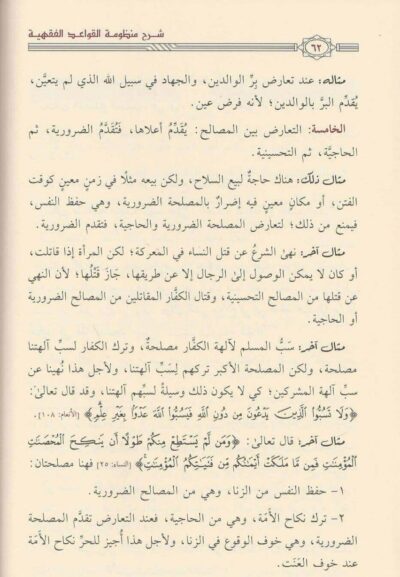 شرح منظومة القواعد الفقهية
٦٢
مثاله: عند تعارض بِرِّ الوالدين، والجهاد في سبيل الله الذي لم يتعيَّن،
يُقدَّم البرُّ بالوالدين؛ لأنه فرض عين.
الخامسة: التعارض بين المصالح: يُقدَّمُ أعلاها، فَتُقَدَّمُ الضرورية، ثم
الحاجيَّة، ثم التحسينية.
مثال ذلك: هناك حاجةٌ لبيع السلاح، ولكن بيعه مثلًا في زمنٍ معينٍ كوقت
الفتن، أو مكانٍ معينٍ فيه إضرارٌ بالمصلحة الضرورية، وهي حفظ النفس،
فيمنع من ذلك؛ لتعارض المصلحة الضرورية والحاجية، فتقدم الضرورية.
مثال آخر: نهىٰ الشرعُ عن قتل النساء في المَعركة؛ لكن المرأة إذا قاتلت،
أو كان لا يمكن الوصول إلىٰ الرجال إلا عن طريقها، جَازَ قَتْلُها؛ لأن النهي
عن قتلها من المصالح التحسينية، وقتال الكفَّار المقاتلين من المصالح الضرورية
أو الحاجية.
مثال آخر: سَبُّ المسلم لآلهة الكفَّار مصلحةٌ، وترك الكفار لسبِّ آلهتنا
مصلحة، ولكن المصلحة الأكبر تركهم لِسَبِّ آلهتنا، ولأجل هذا نُهينا عن
سبِّ آلهة المشركين؛ كي لا يكون ذلك وسيلةً لسبِّهم آلهتنا، وقد قال تعالىٰ:
﴿وَلَا تَسُبُّوا۟ ٱلَّذِينَ يَدْعُونَ مِن دُونِ ٱللَّهِ فَيَسُبُّوا۟ ٱللَّهَ عَدْوًۢا بِغَيْرِ عِلْمٍ﴾ [الأنعام: ١٠٨].
مثال آخر: قال تعالىٰ: ﴿وَمَن لَّمْ يَسْتَطِعْ مِنكُمْ طَوْلًا أَن يَنكِحَ ٱلْمُحْصَنَٰتِ
ٱلْمُؤْمِنَٰتِ فَمِن مَّا مَلَكَتْ أَيْمَٰنُكُم مِّن فَتَيَٰتِكُمُ ٱلْمُؤْمِنَٰتِ﴾ [النساء: ٢٥] فهنا مصلحتان:
١- حفظ النفس من الزنا، وهي من المصالح الضرورية.
٢- ترك نكاح الأَمَة، وهي من الحاجية، فعند التعارض تقدَّم المصلحة
الضرورية، وهي خوف الوقوع في الزنا، ولأجل هذا أُجيز للحرِّ نكاح الأَمَة
عند خوف العَنَت.